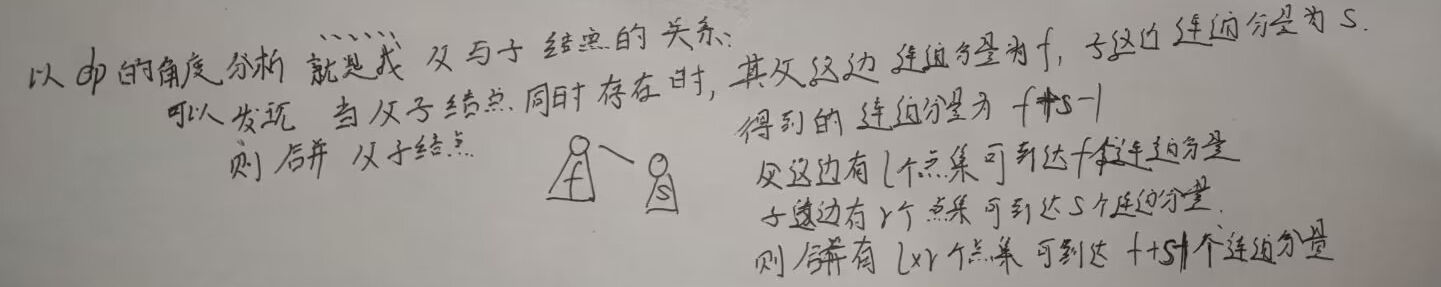 以dp的角度分析 就是找 父与子 结点的关系:
可以发现 当父子结点同时存在时, 其父这边 连通分量为f, 子这边 连通分量为s.
则合并 父子结点 得到的 连通分量为 f+s-1
f s
父这边有l个点集可到达f个连通分量
子这边有r个点集可到达s个连通分量.
则合并有l×r个点集 可到达 f+s-1个连通分量